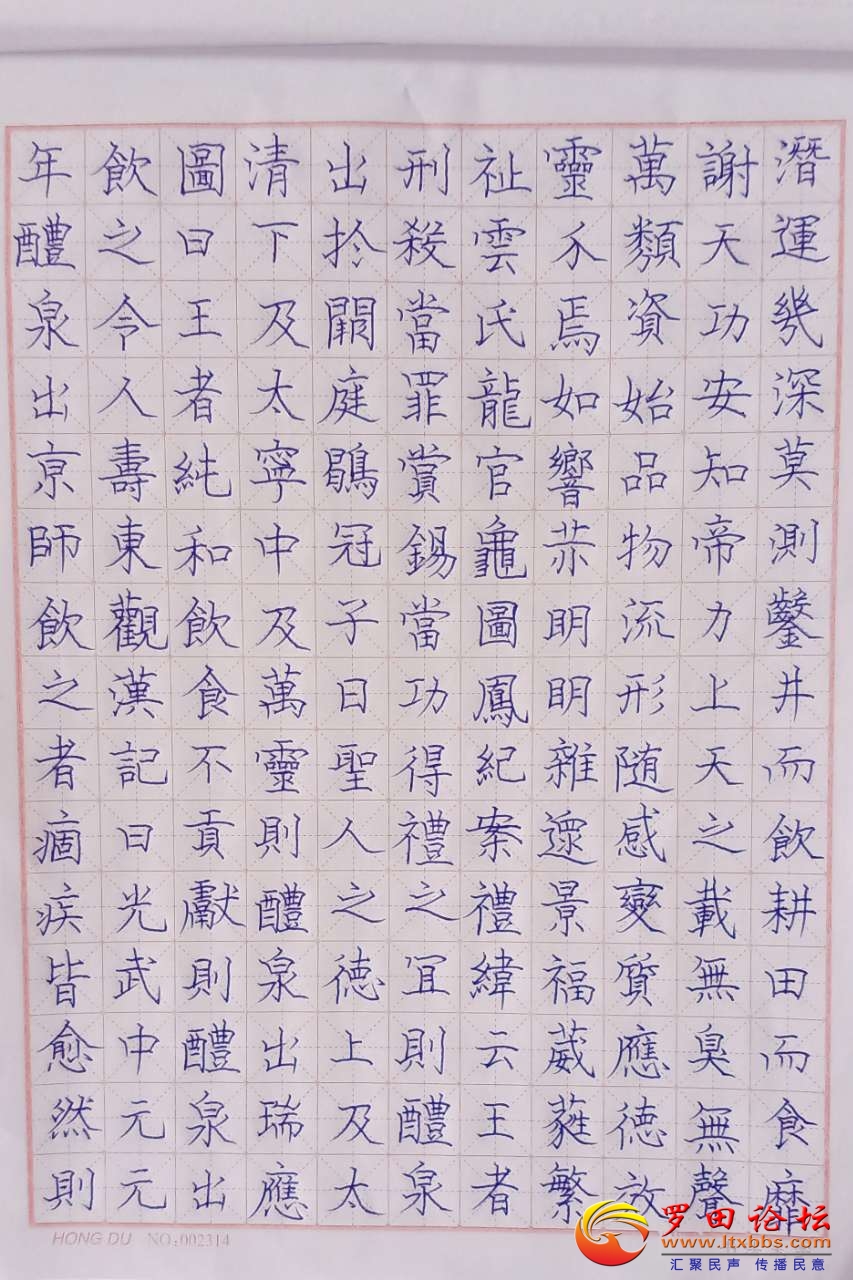 潛運幾深莫測鑿井而飲耕田而食靡
謝天功安知帝力上天之載無臭無聲
萬類資始品物流形随感變質應德放
靈介焉如響赤明明雜遝景福葳蕤繁
祉雲氏龍官龜圖鳳紀案禮緯云王者
刑殺當罪賞錫當功得禮之宜則醴泉
出扵闕庭鶡冠子曰聖人之德上及太
清下及太寧中及萬靈則醴泉出瑞應
圖曰王者純和飲食不貢獻則醴泉出
飲之令人壽東觀漢記曰光武中元元
年醴泉出亰師飲之者痼疾皆愈然則
HONG DU NO:002314
罗田论坛
www.ltxbbs.com
汇聚民声 传播民意